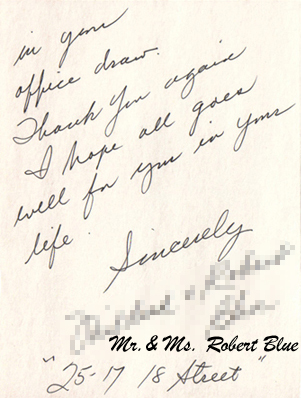 in your
office draw.
Thank You again
I hope all goes
well for you in your
life.
Sincerely
Mr. & Ms. Robert Blue
"25-17 18 Street"